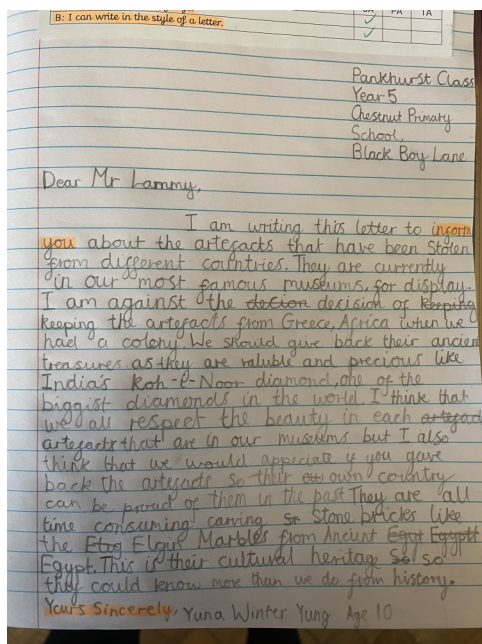 B: I can write in the style of a letter.
SA PA TA
Pankhurst Class
Year 5
Chestnut Primary
School,
Black Boy Lane
Dear Mr Lammy,
I am writing this letter to inform
you about the artefacts that have been stolen
from different countries. They are currently
in our most famous museums, for display.
I am against the decion decision of keeping
keeping the artefacts from Greece, Africa when we
had a colony. We should give back their ancien
treasures as they are valuble and precious like
India's Koh-e-Noor diamond, one of the
biggist diamonds in the world. I think that
we all respect the beauty in each artefact
artefacts that are in our museums but I also
think that we would appeciate if you gave
back the artefacts so their own country
can be proud of them in the past They are all
time consuming carving Stone bricks like
the Elgin Marbles from Ancient Egypt
Egypt. This is their cultural heritag so so
they could know more than we do from history.
Yours Sincerely, Yuna Winter Yung Age 10